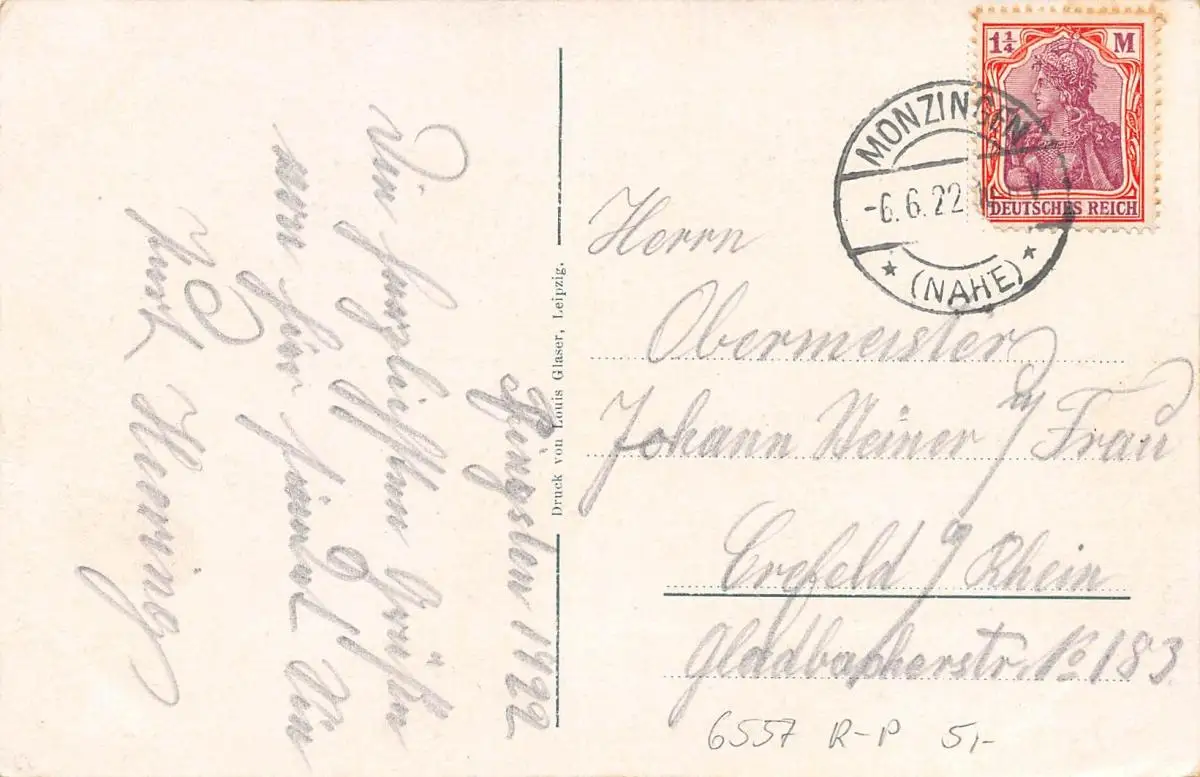 Pfingsten 1922
Die herzlichsten Grüße
von hier sendet
Druck von Louis Glaser, Leipzig.
1¼ M
DEUTSCHES REICH
MONZINGEN
-6.6.22
(NAHE)
Herrn
Obermeister
Johann & Frau
Crefeld a/ Rhein
Gladbacherstr. No 183
6557 R-P 5,-